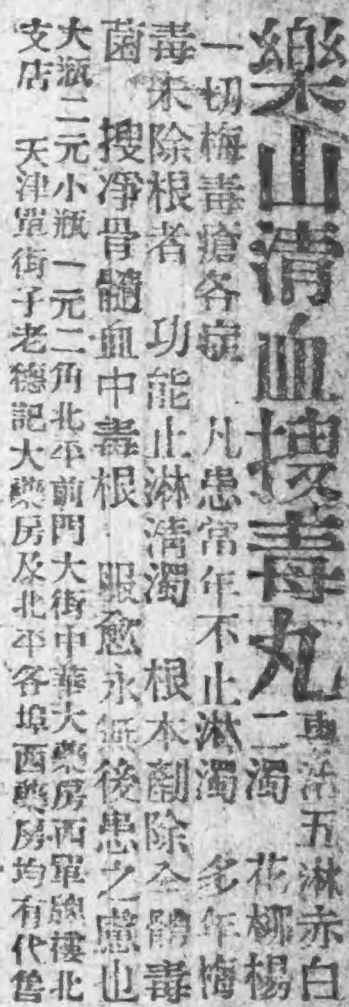 樂山清血搜毒丸
專治五淋赤白
二濁　花柳楊
一切梅毒瘡各症　凡患常年不止淋濁　多年梅
毒未除根者　功能止淋清濁　根本剷除全體毒
菌　搜凈骨髓血中毒根　服愈永無後患之慮也
大瓶二元小瓶一元二角北平前門大街中華大藥房西單牌樓北
支店　天津單街子老德記大藥房及北平各埠西藥房均有代售